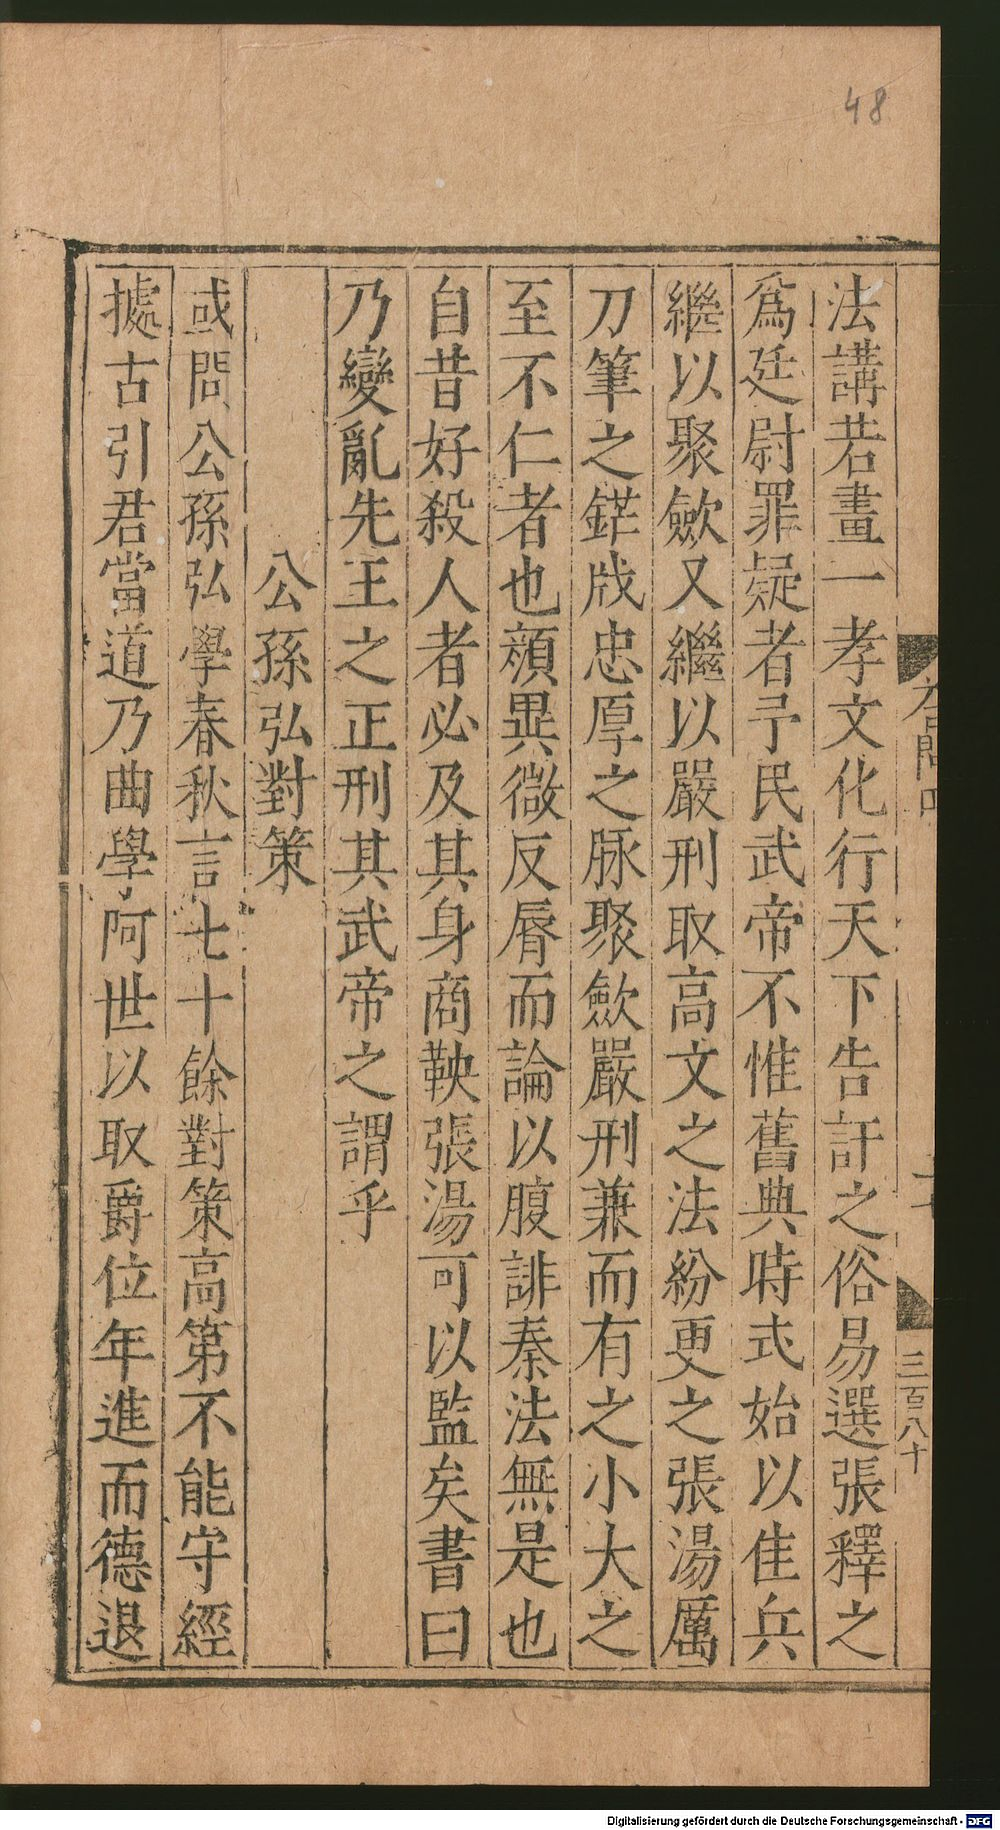 48
法講若畫一孝文化行天下告訐之俗易選張釋之
爲廷尉罪疑者予民武帝不惟舊典時式始以佳兵
繼以聚歛又繼以嚴刑取高文之法紛更之張湯厲
刀筆之鋩戕忠厚之脉聚歛嚴刑兼而有之小大之
至不仁者也顏異微反脣而論以腹誹秦法無是也
自昔好殺人者必及其身商鞅張湯可以監矣書曰
乃變亂先王之正刑其武帝之謂乎
公孫弘對策
或問公孫弘學春秋言七十餘對策高第不能守經
據古引君當道乃曲學阿世以取爵位年進而德退
三百八十
Digitalisierung gefördert durch die Deutsche Forschungsgemeinschaft - DFG